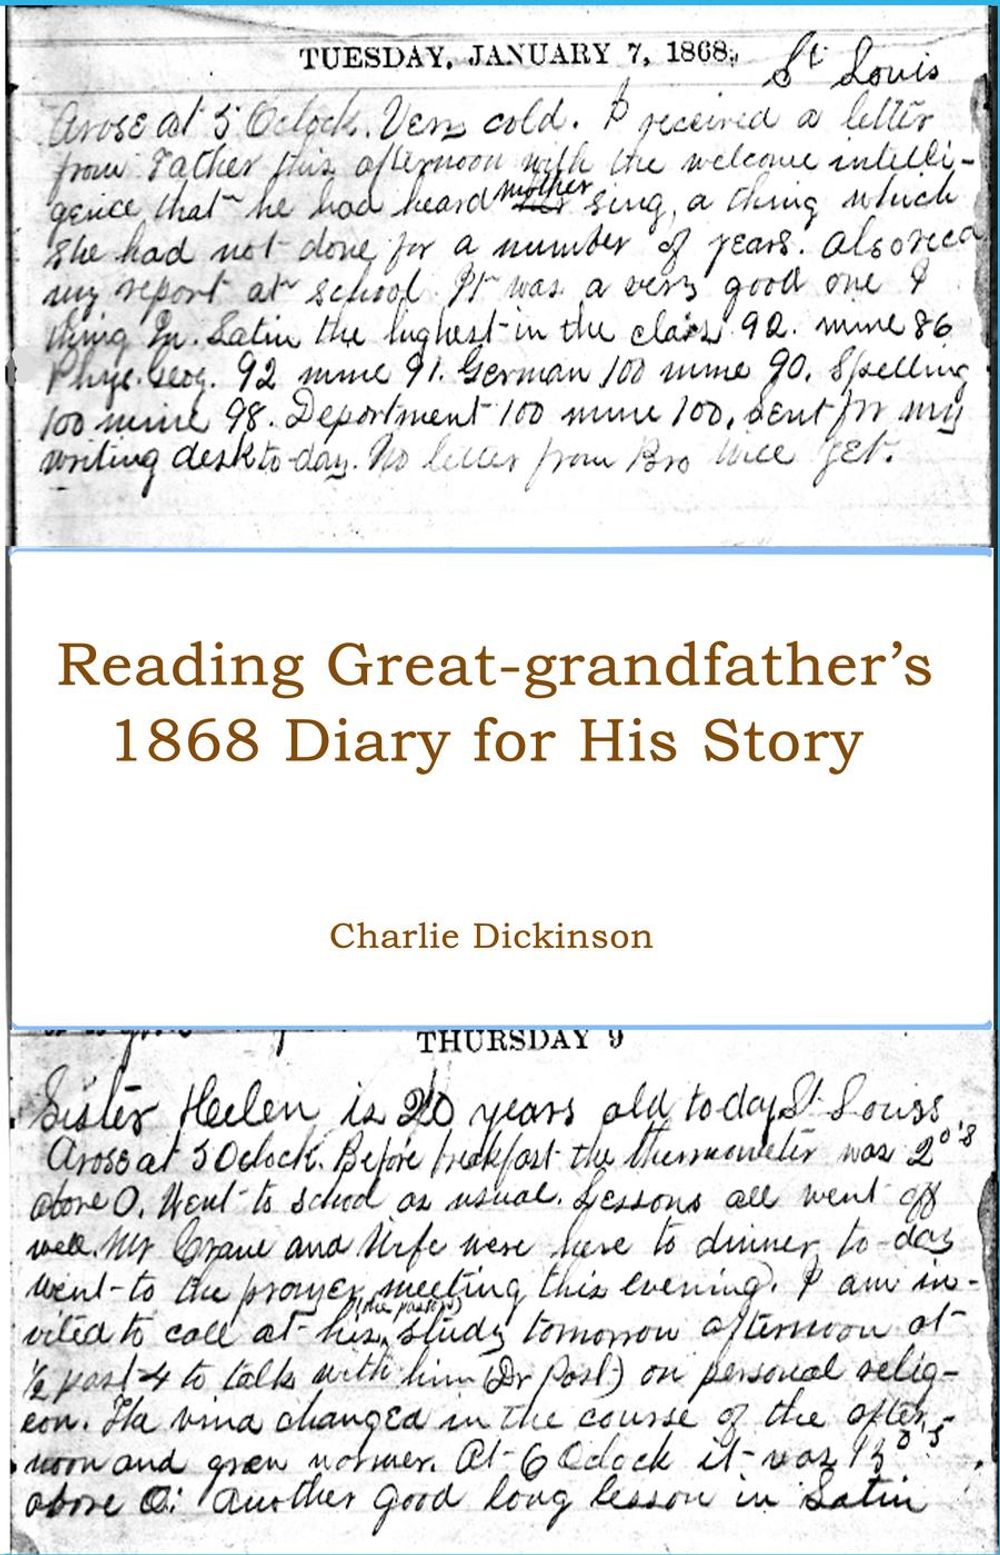 TUESDAY, JANUARY 7, 1868.
St Louis
Arose at 5 Oclock. Very cold. I received a letter
from Father this afternoon with the welcome intelli-
gence that he had heard mother her sing, a thing which
she had not done for a number of years. Also recd
my report at school. It was a very good one I
thing In. Latin the highest in the class 92. mine 86
Phys. Geog. 92 mine 91. German 100 mine 90. Spelling
100 mine 98. Deportment 100 mine 100. Sent for my
writing desk to-day. No letter from Bro Will yet.
Reading Great-grandfather’s
1868 Diary for His Story
Charlie Dickinson
THURSDAY 9
Sister Helen is 20 years old today St. Louis
Arose at 5 Oclock. Before breakfast the thermometer was 2°'s
above 0. Went to school as usual. Lessons all went off
well. Mr Crane and Wife were here to dinner to-day
Went to the prayer meeting this evening. I am in-
vited to call at his (the pastor's) study tomorrow afternoon at
½ past 4 to talk with him (Dr Post) on personal relig-
eon. The wind changed in the course of the after-
noon and grew warmer. At 6 Oclock it was 13°'s
above 0. Another good long lesson in Latin